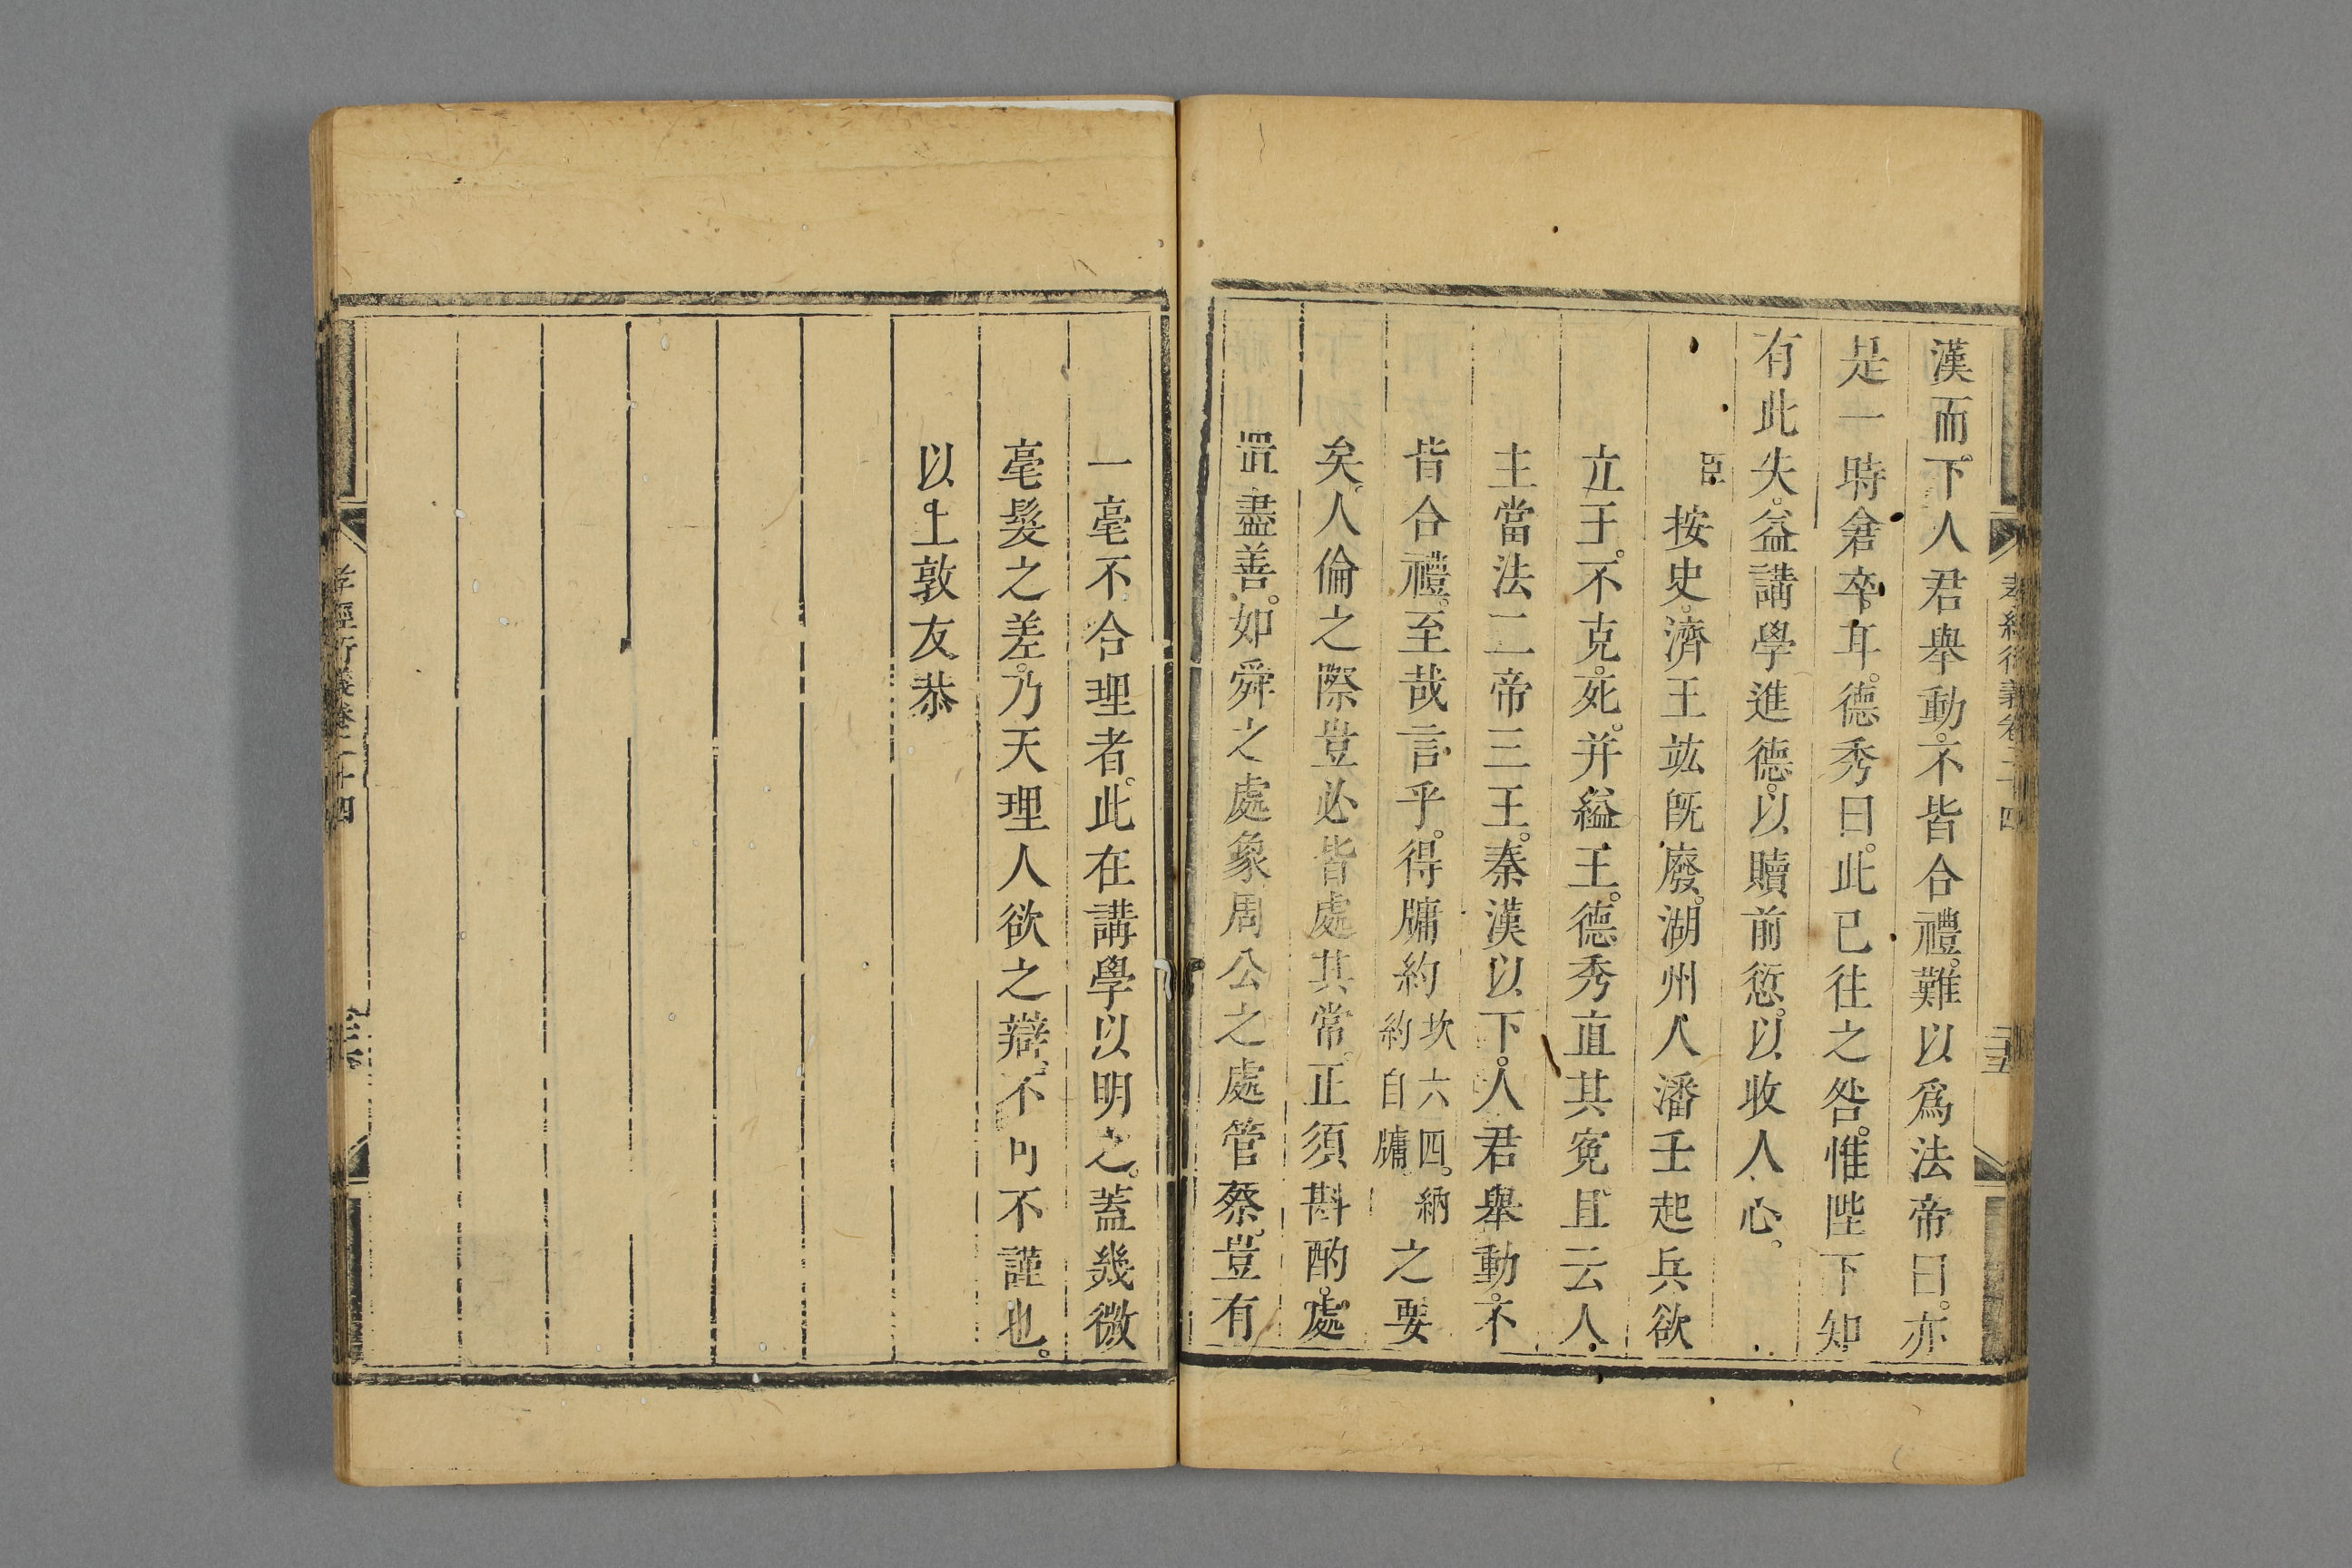 漢而下。人君舉動。不皆合禮。難以爲法帝曰。亦
是一時倉卒耳。德秀曰。此已往之咎。惟陛下知
有此失。益講學進德。以贖前愆。以收人心。
臣按史。濟王竑旣廢。湖州人潘壬起兵欲
立王。不克死。并縊王。德秀直其寃。且云人
主當法二帝三王。秦漢以下。人君舉動。不
皆合禮。至哉言乎。得牖約坎六四。納約自牖之要
矣。人倫之際。豈必皆處其常。正須斟酌。處
置盡善。如舜之處象周公之處管蔡。豈有
孝經衍義卷二十四
一毫不合理者。此在講學以明之。蓋幾微
毫髮之差。乃天理人欲之辯。不可不謹也。
以上敦友恭
孝經衍義卷二十四